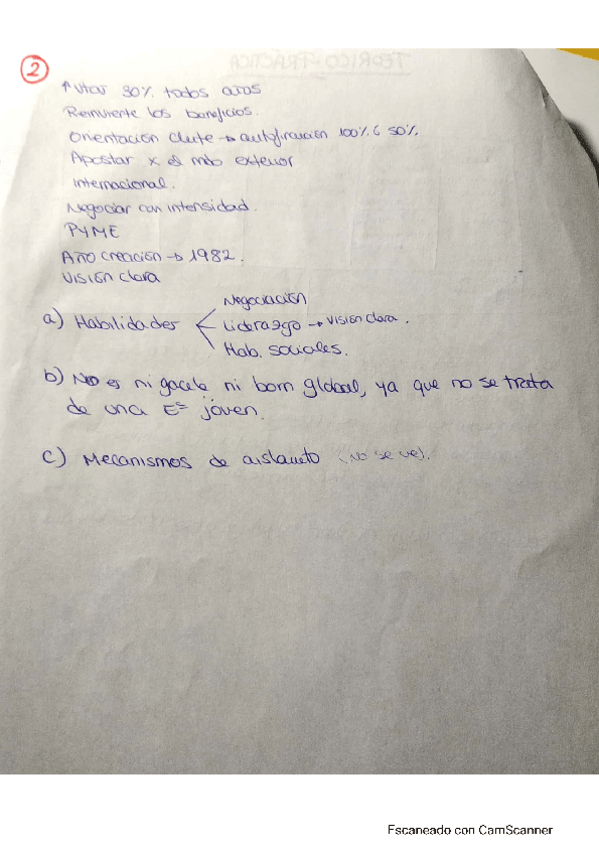 TEÓRICO-PRÁCTICA
2
↑ Vtas 30% todos años
Reinvierte los beneficios.
Orientación clnte → autofinación 100% ó 50%.
Apostar x el mdo exterior
internacional.
Negociar con intensidad.
PYME
Año creación → 1982.
Visión clara
a) Habilidades
Negociación
Liderazgo → visión clara.
Hab. sociales.
b) No es ni gacela ni born global, ya que no se trata
de una Eª joven.
c) Mecanismos de aislamto (no se ve).
Escaneado con CamScanner